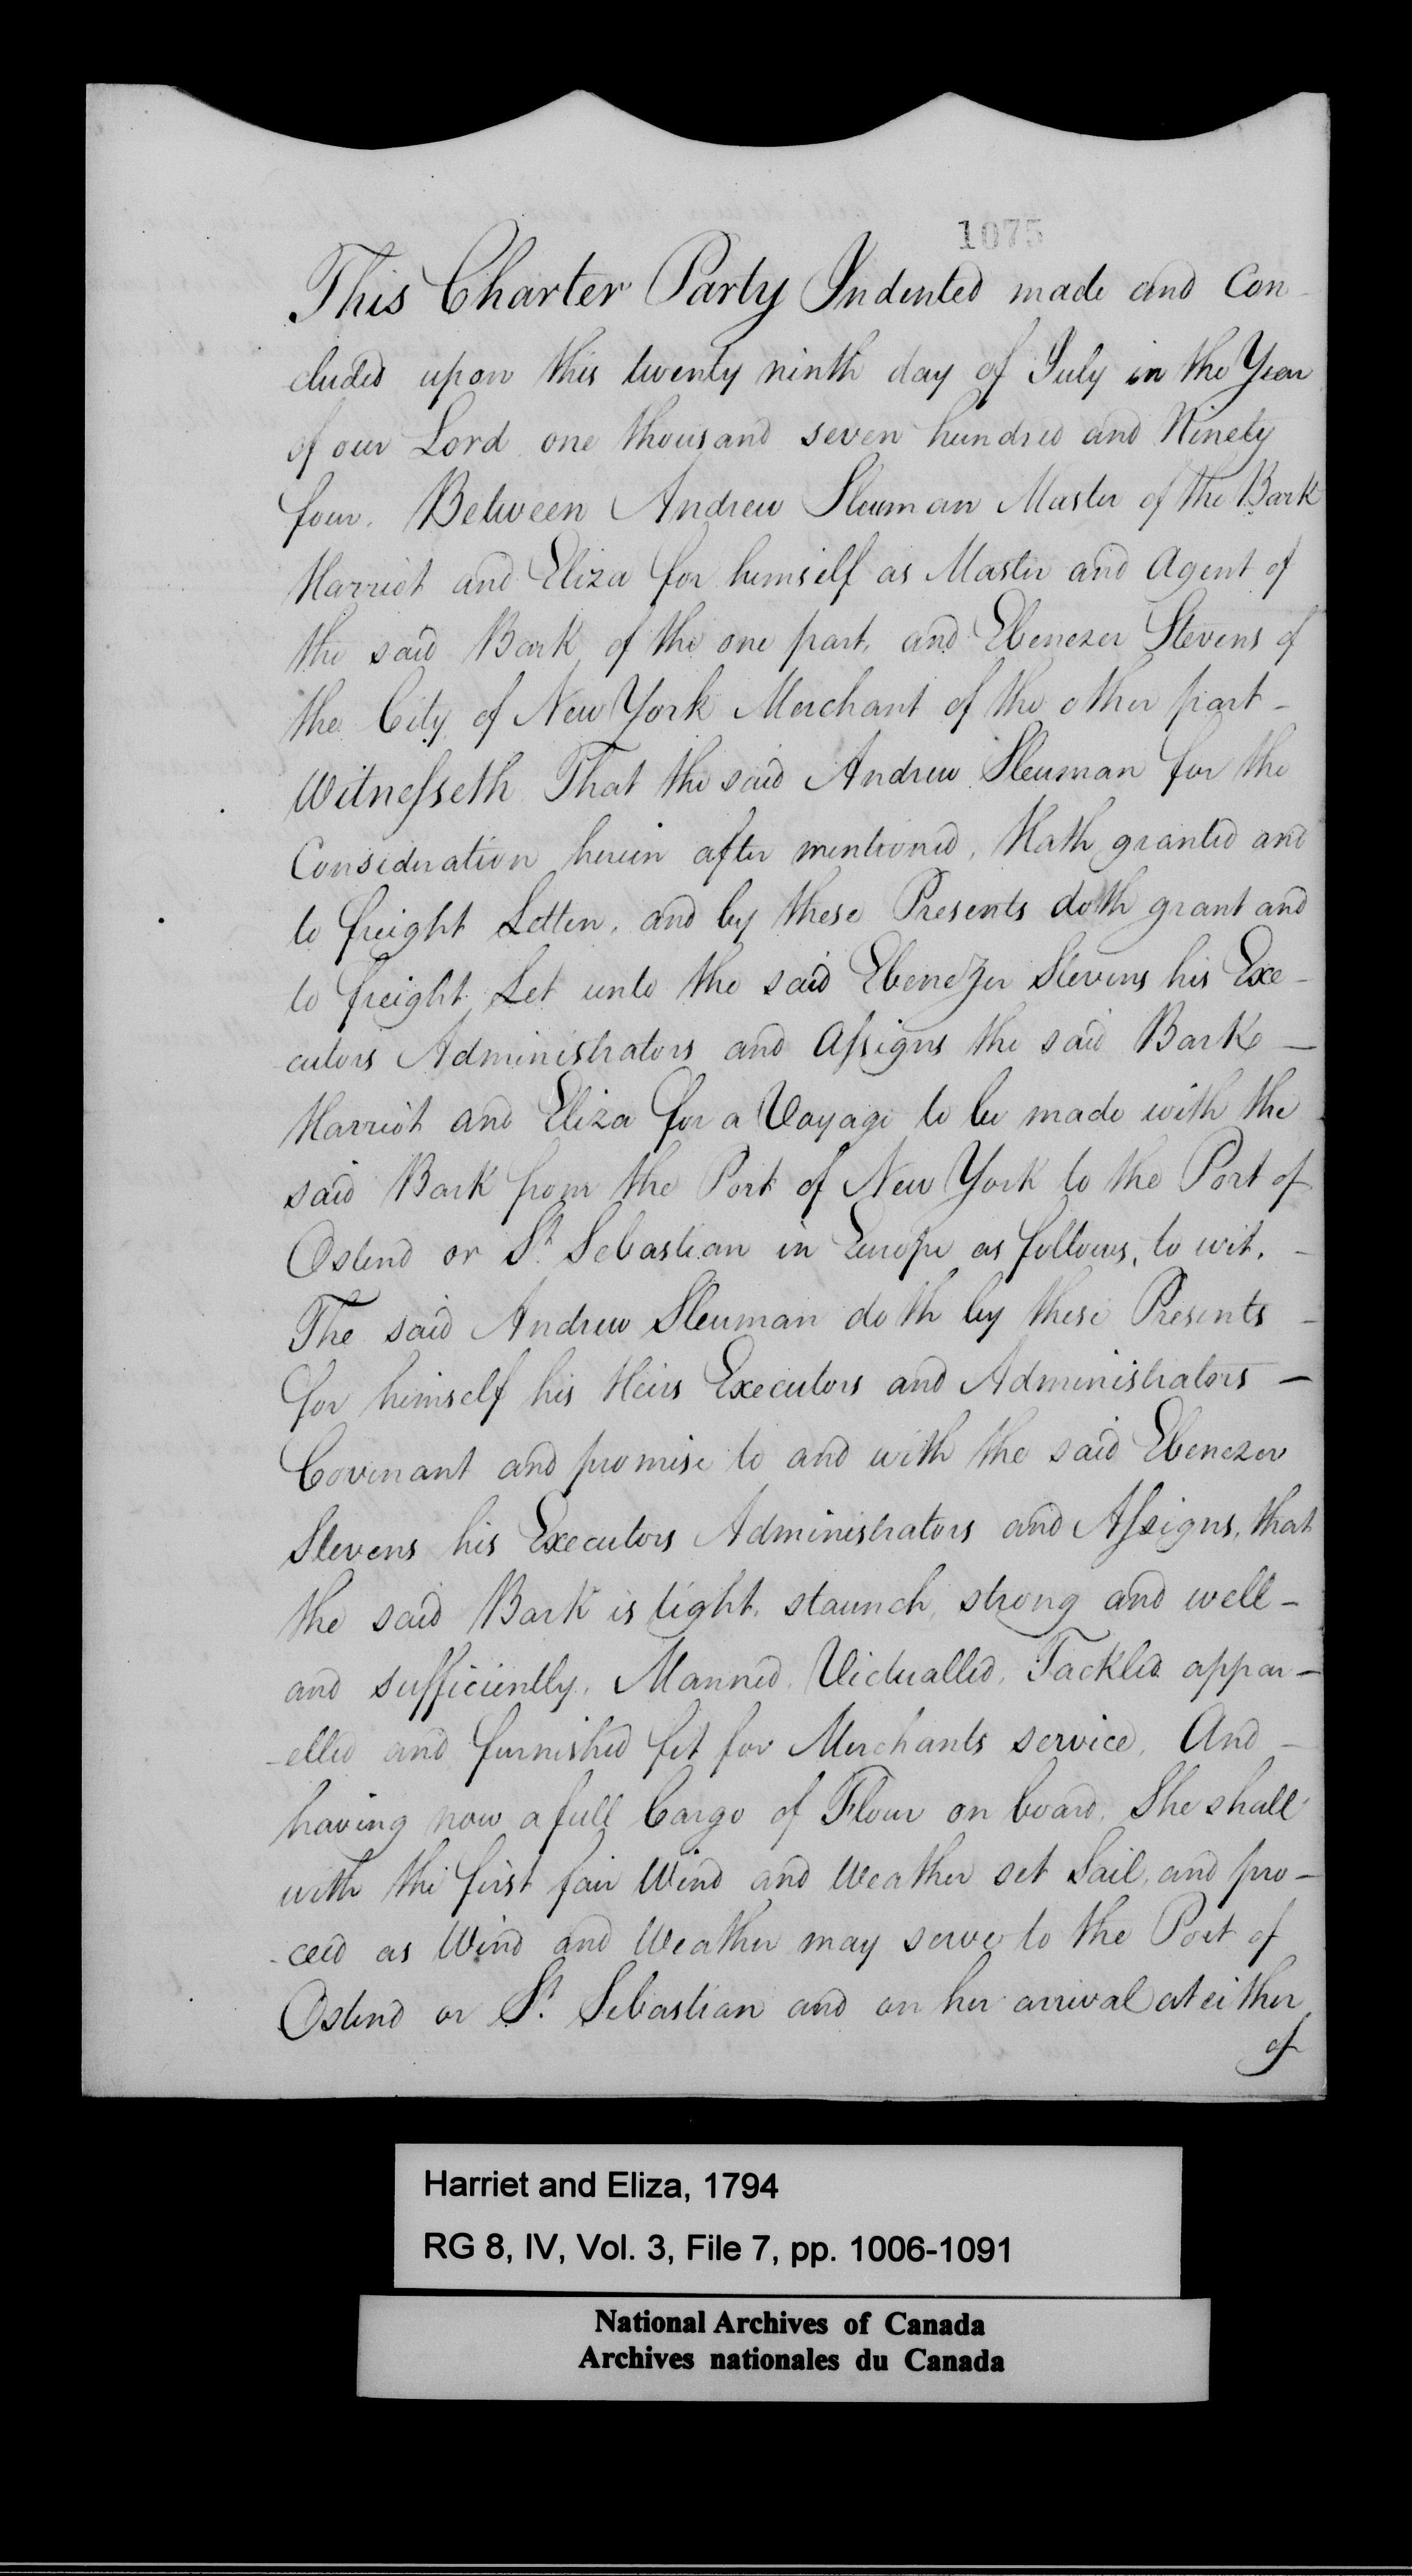 1075
This Charter Party Indented made and Con-
cluded upon this twenty ninth day of July in the Year
of our Lord one thousand seven hundred and Ninety
four. Between Andrew Sleuman Master of the Bark
Harriot and Eliza for himself as Master and Agent of
the said Bark of the one part, and Ebenezer Stevens of
the City of New York Merchant of the other part -
Witnesseth That the said Andrew Sleuman for the
Consideration herein after mentioned, Hath granted and
to freight Letten, and by these Presents doth grant and
to freight Let unto the said Ebenezer Stevens his Exe-
cutors Administrators and Assigns the said Bark —
Harriot and Eliza for a Voyage to be made with the
said Bark from the Port of New York to the Port of
Ostend or St. Sebastian in Europe as follows, to wit. -
The said Andrew Sleuman doth by these Presents -
for himself his Heirs Executors and Administrators —
Covenant and promise to and with the said Ebenezer
Stevens his Executors Administrators and Assigns, that
the said Bark is tight, staunch, strong and well -
and sufficiently, Manned, Victualled, Tackled appar-
-elled and furnished fit for Merchants service, And -
having now a full Cargo of Flour on board, She shall
with the first fair Wind and Weather set Sail, and pro-
-ceed as Wind and Weather may serve to the Port of
Ostend or St. Sebastian and on her arrival at either
of
Harriet and Eliza, 1794
RG 8, IV, Vol. 3, File 7, pp. 1006-1091
National Archives of Canada
Archives nationales du Canada